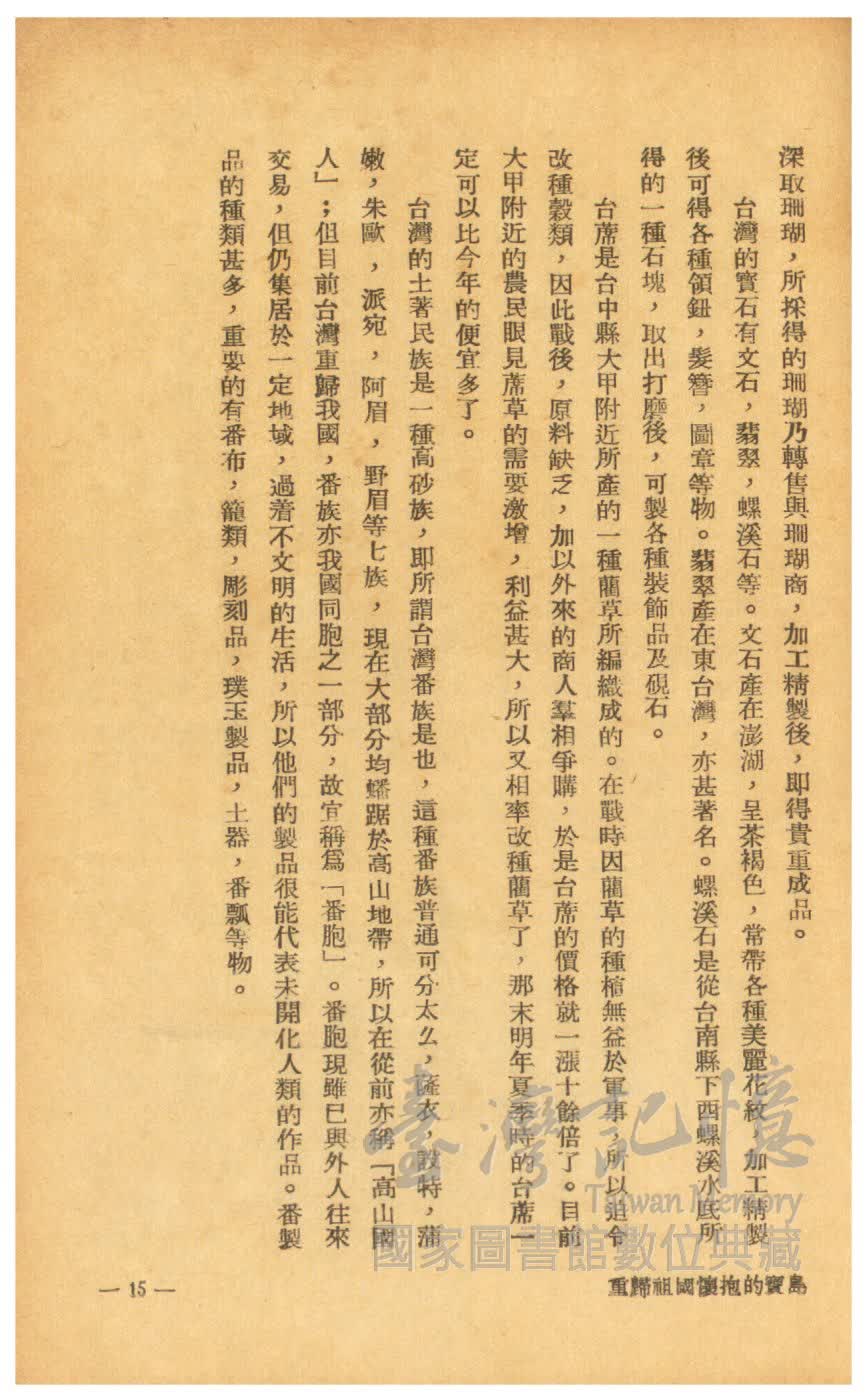 深取珊瑚，所採得的珊瑚乃轉售與珊瑚商，加工精製後，即得貴重成品。
台灣的寶石有文石，翡翠，螺溪石等。文石產在澎湖，呈茶褐色，常帶各種美麗花紋，加工精製
後可得各種領鈕，髮簪，圖章等物。翡翠產在東台灣，亦甚著名。螺溪石是從台南縣下西螺溪水底所
得的一種石塊，取出打磨後，可製各種裝飾品及硯石。
台蓆是台中縣大甲附近所產的一種藺草所編織成的。在戰時因藺草的種植無益於軍事，所以迫令
改種穀類，因此戰後，原料缺乏，加以外來的商人羣相爭購，於是台蓆的價格就一漲十餘倍了。目前
大甲附近的農民眼見蓆草的需要激增，利益甚大，所以又相率改種藺草了，那末明年夏季時的台蓆一
定可以比今年的便宜多了。
台灣的土著民族是一種高砂族，即所謂台灣番族是也，這種番族普通可分太么，薩衣，設特，蒲
嫩，朱歐，派宛，阿眉，野眉等七族，現在大部分均蟠踞於高山地帶，所以在從前亦稱「高山國
人」；但目前台灣重歸我國，番族亦我國同胞之一部分，故宜稱爲「番胞」。番胞現雖已與外人往來
交易，但仍集居於一定地域，過着不文明的生活，所以他們的製品很能代表未開化人類的作品。番製
品的種類甚多，重要的有番布，籠類，彫刻品，璞玉製品，土器，番瓢等物。
臺灣記憶
Taiwan Memory
國家圖書館數位典藏
重歸祖國懷抱的寶島
— 15 —